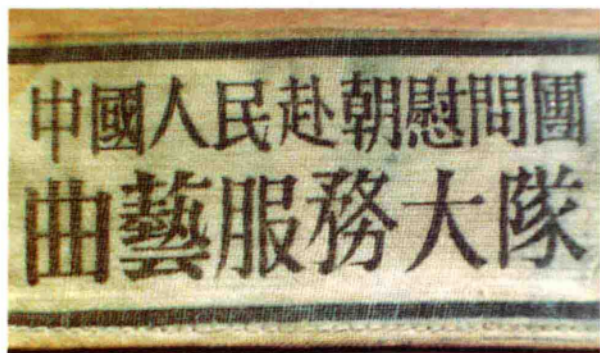 中國人民赴朝慰問團
曲藝服務大隊